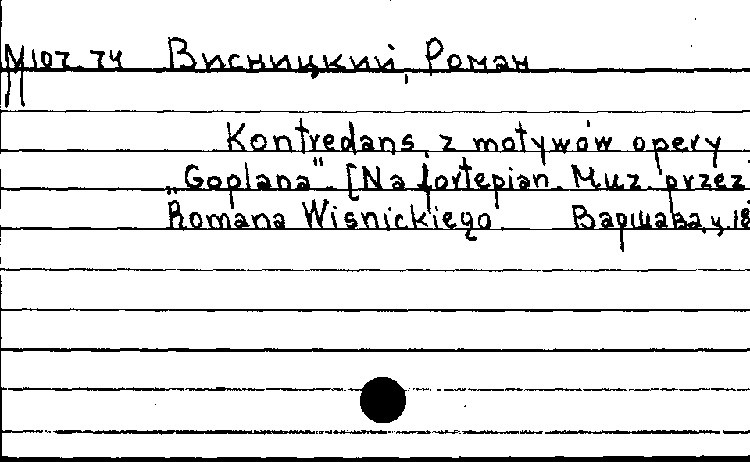 М107.74 Висницкий, Роман
Kontredans, z motywów opery
„Goplana". [Na fortepian. Muz. przez
Romana Wisnickiego. Варшава, ц. 18